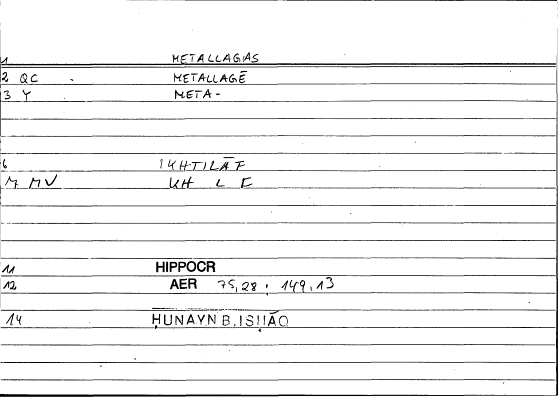 1 METALLAGAS
2 QC METALLAGĒ
3 Y META-
6 IKHTILĀF
M MV KH L F
11 HIPPOCR
12 AER 75,28 : 149,13
14 ḤUNAYN B. ISḤĀQ